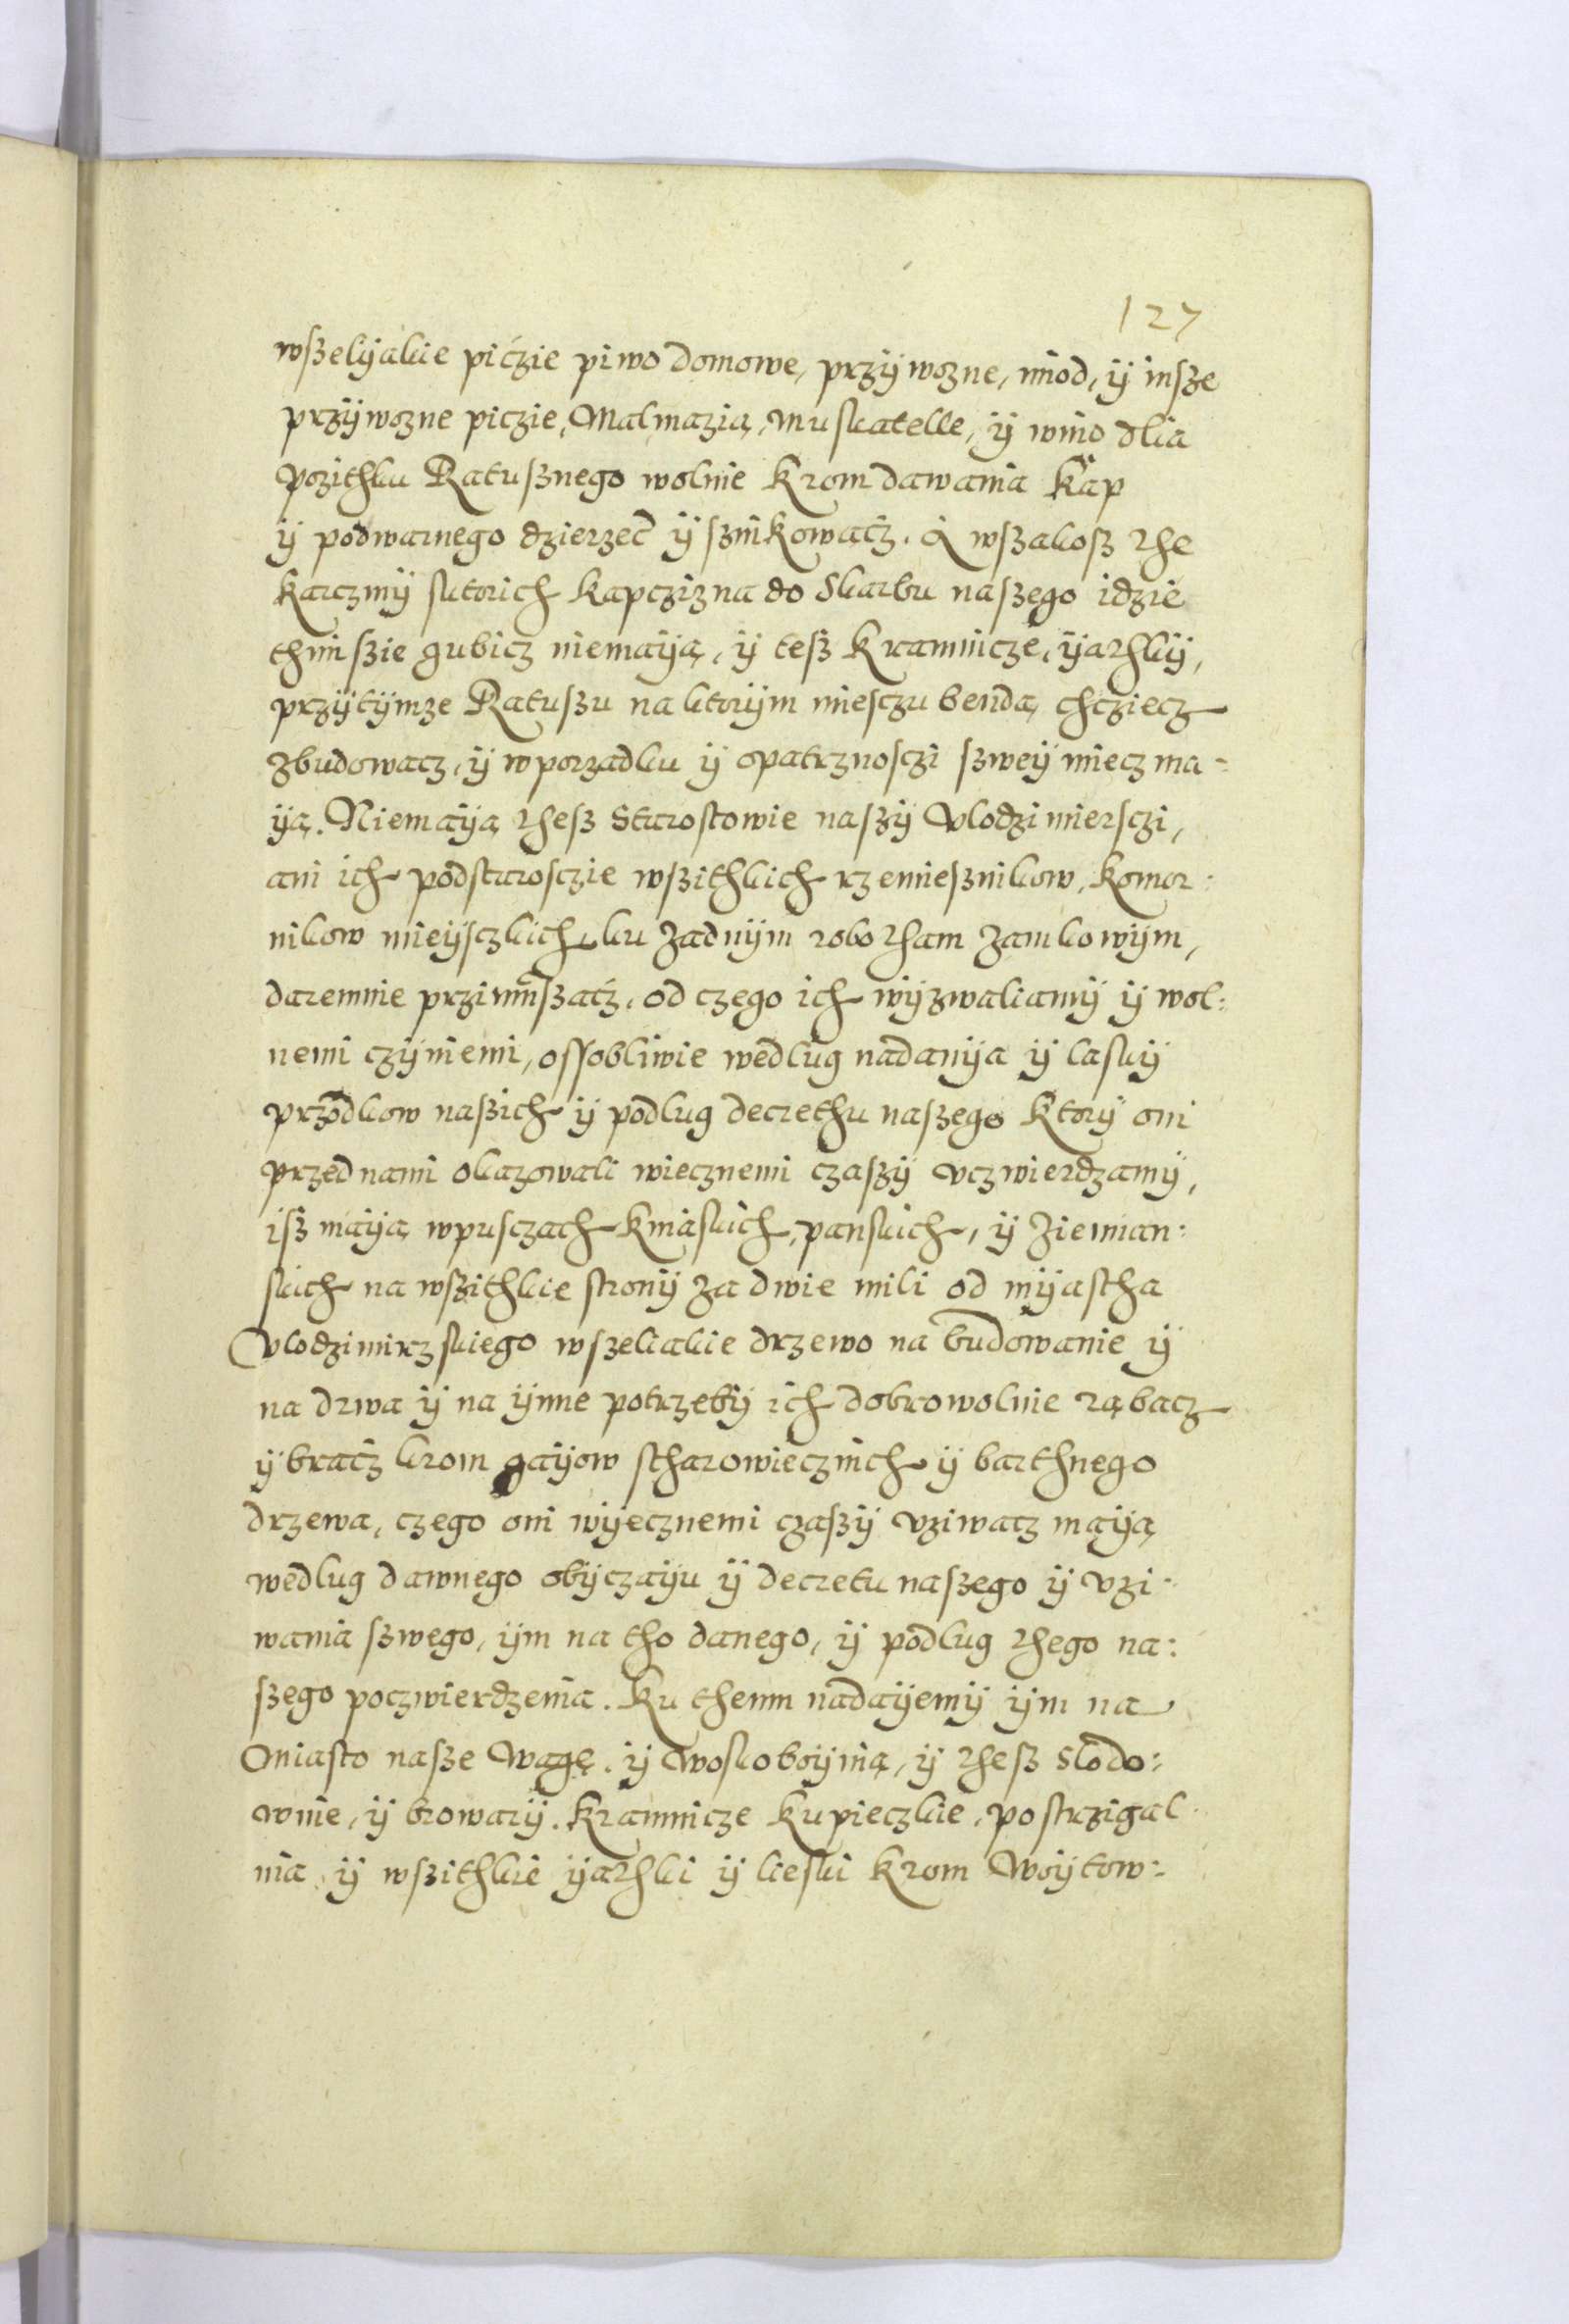 127
wszelyakie piczie piwo domowe, przÿwozne, miod, ÿ insze
przÿwozne piczie, Malmazią, Muskatelle, ÿ wino dlia
pozithku Ratusznego wolnie Krom dawania Kap
ÿ podwarnego dzierzec ÿ szinkowacz. A wszakosz the
karczmÿ ktorich kapczizna do Skarbu naszego idzie
thim szie gubicz niemaÿą, ÿ tesz Kramnicze, ÿathkÿ,
przÿtÿmze Ratuszu na ktorÿm miesczu bendą chcziecz
zbudowacz, ÿ w porzadku ÿ opatrznosczi szweÿ miecz ma-
ÿą. Niemaÿą thesz Starostowie naszÿ Wlodzimiersczi,
ani ich podstarosczie wszithkich rzemiesznikow, komor:
nikow mieÿsczkich, ku zadnÿm robotham zamkowÿm,
daremnie przimuszacz, od czego ich wÿzwaliamÿ ÿ wol:
nemi czÿniemi, ossobliwie wedlug nadanÿa ÿ laskÿ
przodkow naszich ÿ podlug decrethu naszego Ktorÿ oni
przed nami okazowali wiecznemi czaszÿ vczwierdzamÿ,
isz maÿą w pusczach Kniaskich, panskich, ÿ Zieman:
skich na wszithkie stronÿ za dwie mili od mÿastha
Wlodzimirzskiego wszeliakie drzewo na budowanie ÿ
na drwa ÿ na ÿnne potrzebÿ ich dobrowolnie rąbacz
ÿ bracz krom gaÿow starowiecznich ÿ barthnego
drzewa, czego oni wÿecznemi czaszÿ vziwacz maÿą
wedlug dawnego obÿczaÿu ÿ decretu naszego ÿ vzi-
wania szwego, ÿm na tho danego, ÿ podlug thego na:
szego poczwierdzenia. Ku themu nadaÿemÿ ÿm na
Miasto nasze Wagę, ÿ Woskoboÿnią, ÿ thesz Slodo:
wnie, ÿ browarÿ. Kramnicze Kupieczkie, postrzigal-
nia, ÿ wszithkie ÿathki ÿ kleski Krom Woÿtow: